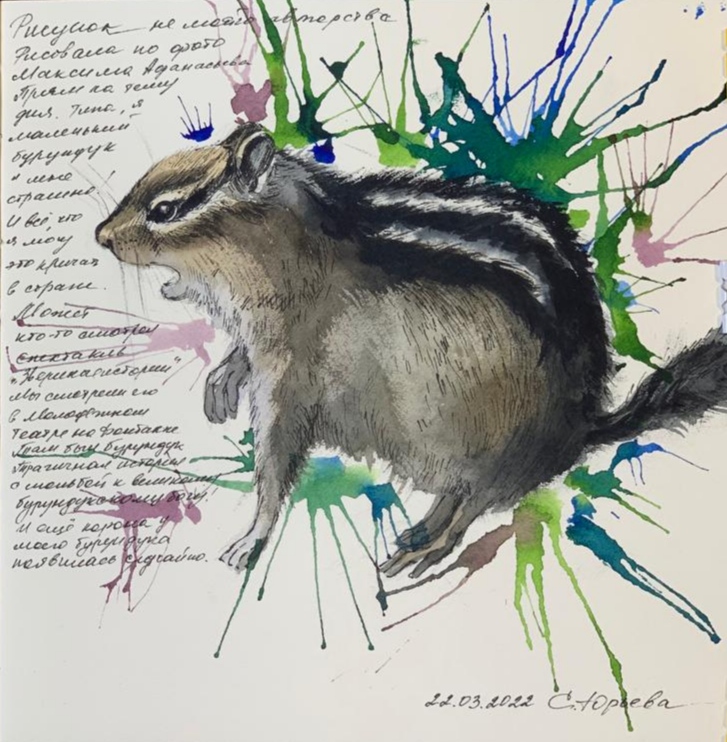 Рисунок не моего авторства
Рисовала по фото
Максима Афанасьева
Прям на тему
дня. Типа, я
маленький
бурундук
и мне
страшно!
И всё, что
я могу
это кричать
в страхе.
Может
кто-то смотрел
спектакль
"Жирикисистории"
Мы смотрели его
в Молодёжном
Театре на Фонтанке
Там был бурундук
Трагичная история
с мольбой к великому
бурундуковому богу!
И ещё корона у
моего бурундука
появилась случайно.
22.03.2022 С.Юрьева